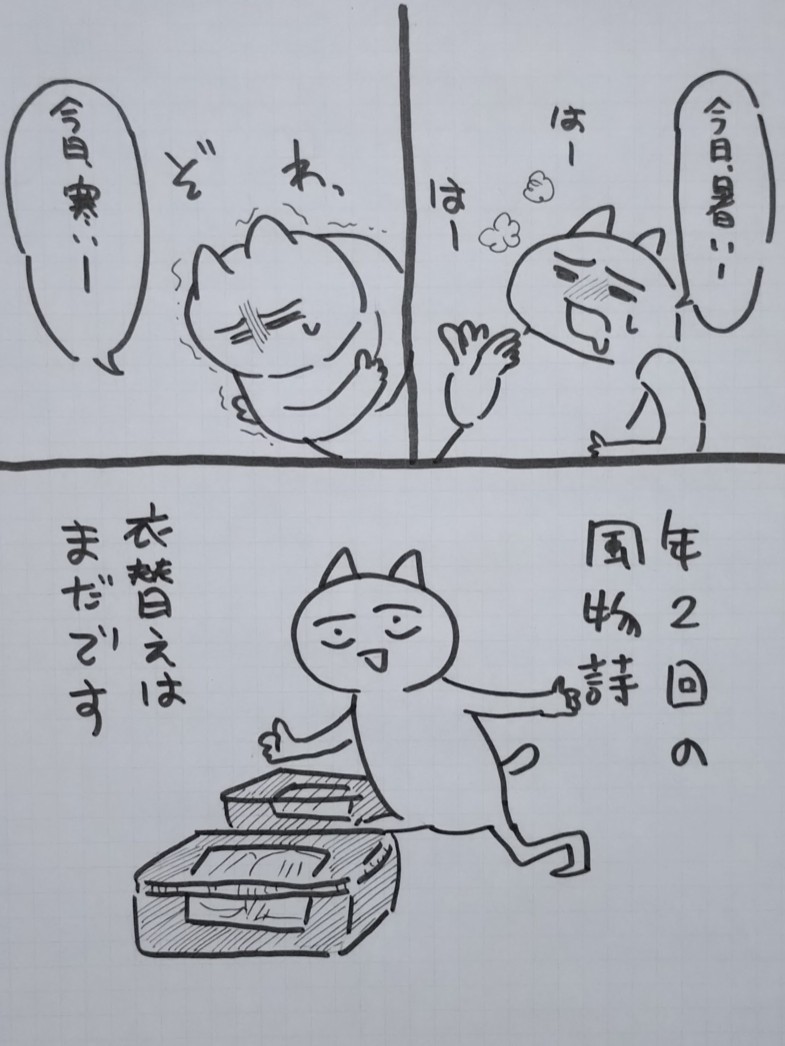 今日、暑いー
はー
はー
ぞわっ
今日、寒いー
年2回の
風物詩
衣替えは
まだです